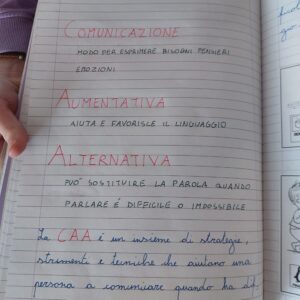 COMUNICAZIONE
MODO PER ESPRIMERE BISOGNI PENSIERI
EMOZIONI
AUMENTATIVA
AIUTA E FAVORISCE IL LINGUAGGIO
ALTERNATIVA
PUO' SOSTITUIRE LA PAROLA QUANDO
PARLARE É DIFFICILE O IMPOSSIBILE
La CAA é un insieme di strategie,
strumenti e tecniche che aiutano una
persona a comunicare quando ha dif